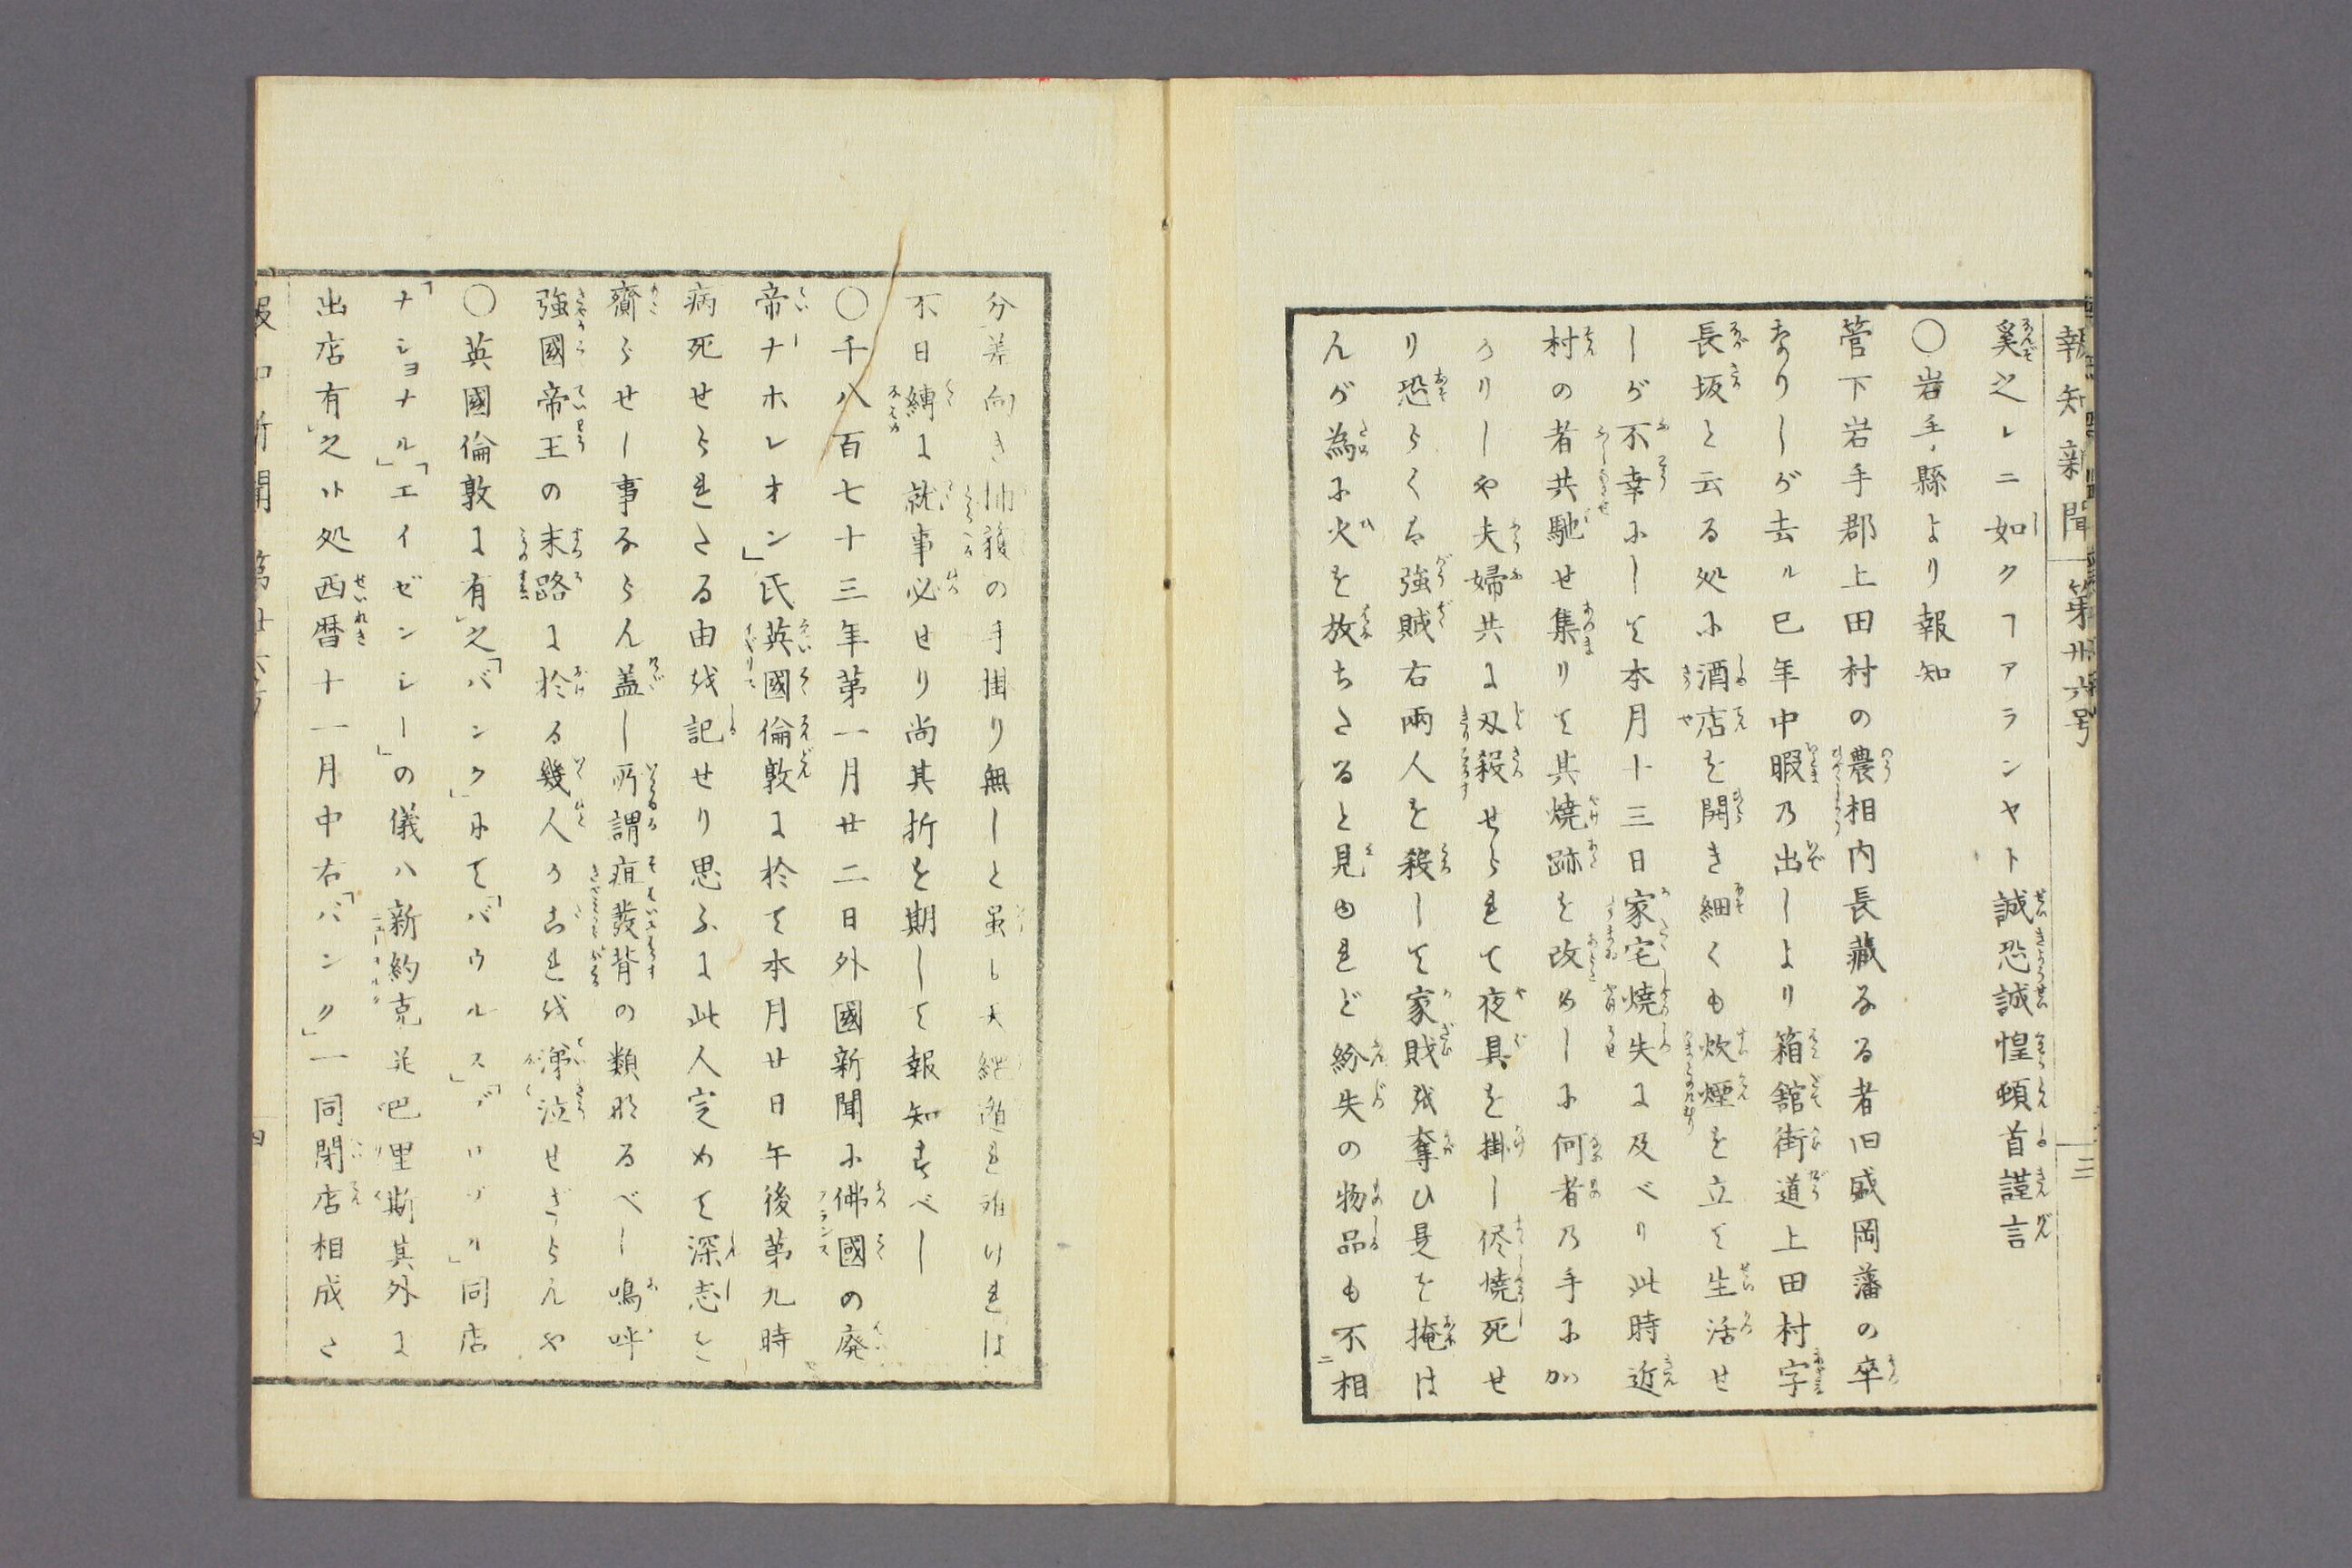 報知新聞 第卅六号 三
奚之レニ如クヿアランヤト誠恐誠惶頓首謹言
〇岩手縣より報知
管下岩手郡上田村の農相内長藏なる者旧盛岡藩の卒
なりしが去ル巳年中暇乃出しより箱舘街道上田村字
長坂と云る処に酒店を開き細くも炊煙を立て生活せ
しが不幸にして本月十三日家宅焼失に及べり此時近
村の者共馳せ集りて其焼跡を改めしに何者乃手にか
ゝりしや夫婦共に刄殺せられて夜具を掛し侭焼死せ
り恐らくは強賊右兩人を殺して家財を奪ひ是を掩は
んが為に火を放ちたると見ゆれど紛失の物品も不相
分差向き捕獲の手掛り無しと虽も天網遁れ難けれは
不日縛に就事必せり尚其折を期して報知すべし
〇千八百七十三年第一月廿二日外國新聞に佛國の廃
帝「ナホレオン」氏英國倫敦に於て本月廿日午後第九時
病死せられたる由を記せり思ふに此人定めて深志を
齎らせし事ならん盖し所謂疽發背の類なるべし嗚呼
強國帝王の末路に於る幾人かこれを涕泣せざらんや
〇英國倫敦に有之「バンク」にて「バウルス」「 」同店
「ナショナル」「エイゼンシー」の儀ハ新約克并巴里斯其外に
出店有之候処西暦十一月中右「バンク」一同閉店相成た
報知新聞 第卅六号 四